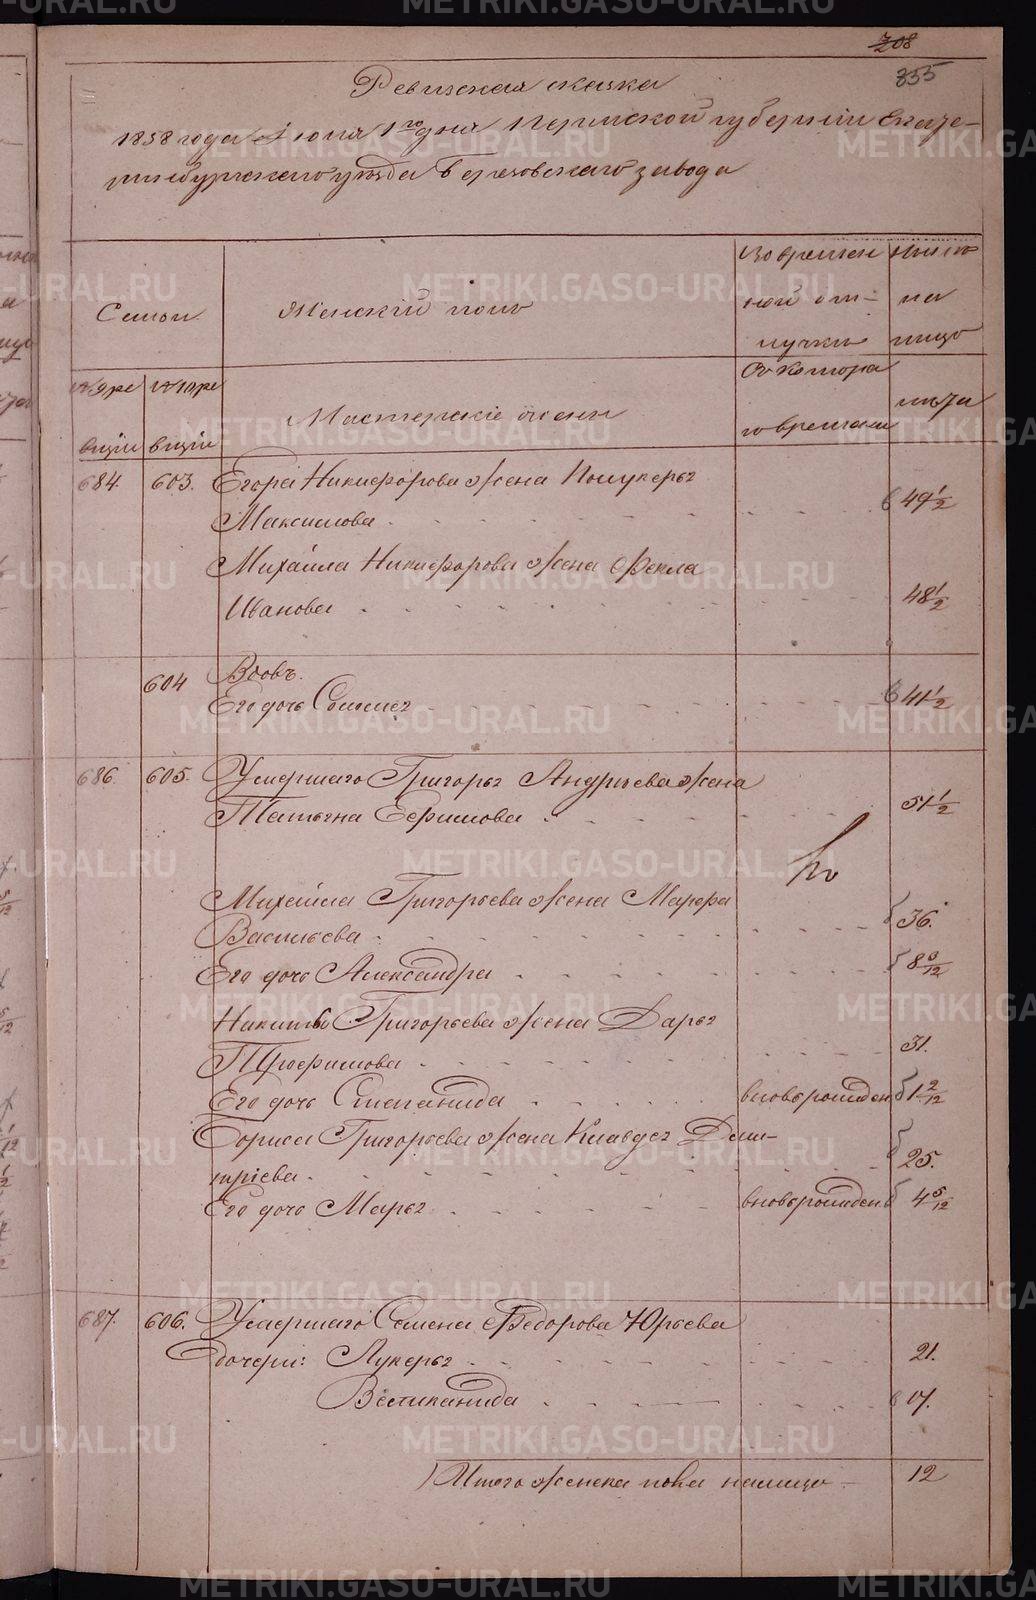 708
855
Ревизская сказка
1858 года Июня 1го дня Пермской губернии Екате-
ринбургского уезда Березовского завода
Семьи
Женскій полъ
Во времен
ной от-
лучке
Съ котора
го времени
Ныне
на
лицо
лета
№ 9 ре
визіи
№ 10 ре
визіи
Мастерскіе жены
684. 603. Егора Никифорова жена Гликерья
Максимова 49 1/2
Михайла Никифорова жена Фекла
Иванова 48 1/2
604 Вдовъ.
Его дочь Соломея 41 1/2
686. 605. Умершаго Григорья Андреева жена
Татьяна Ефимова 51 1/2
Михайла Григорьева жена Марфа
Васильева 36.
Его дочь Александра 8
Никиты Григорьева жена Дарья
Трофимова 31.
Его дочь Степанида вновьрожден 1 2/12
Бориса Григорьева жена Клавдея Дми-
тріева 25.
Его дочь Марья вновьрожден 4 5/12
687. 606. Умершаго Семена Федорова Юрьева
дочери: Лукерья 21.
Степанида 17.
Итого женска пола налицо 12
METRIKI.GASO-URAL.RU